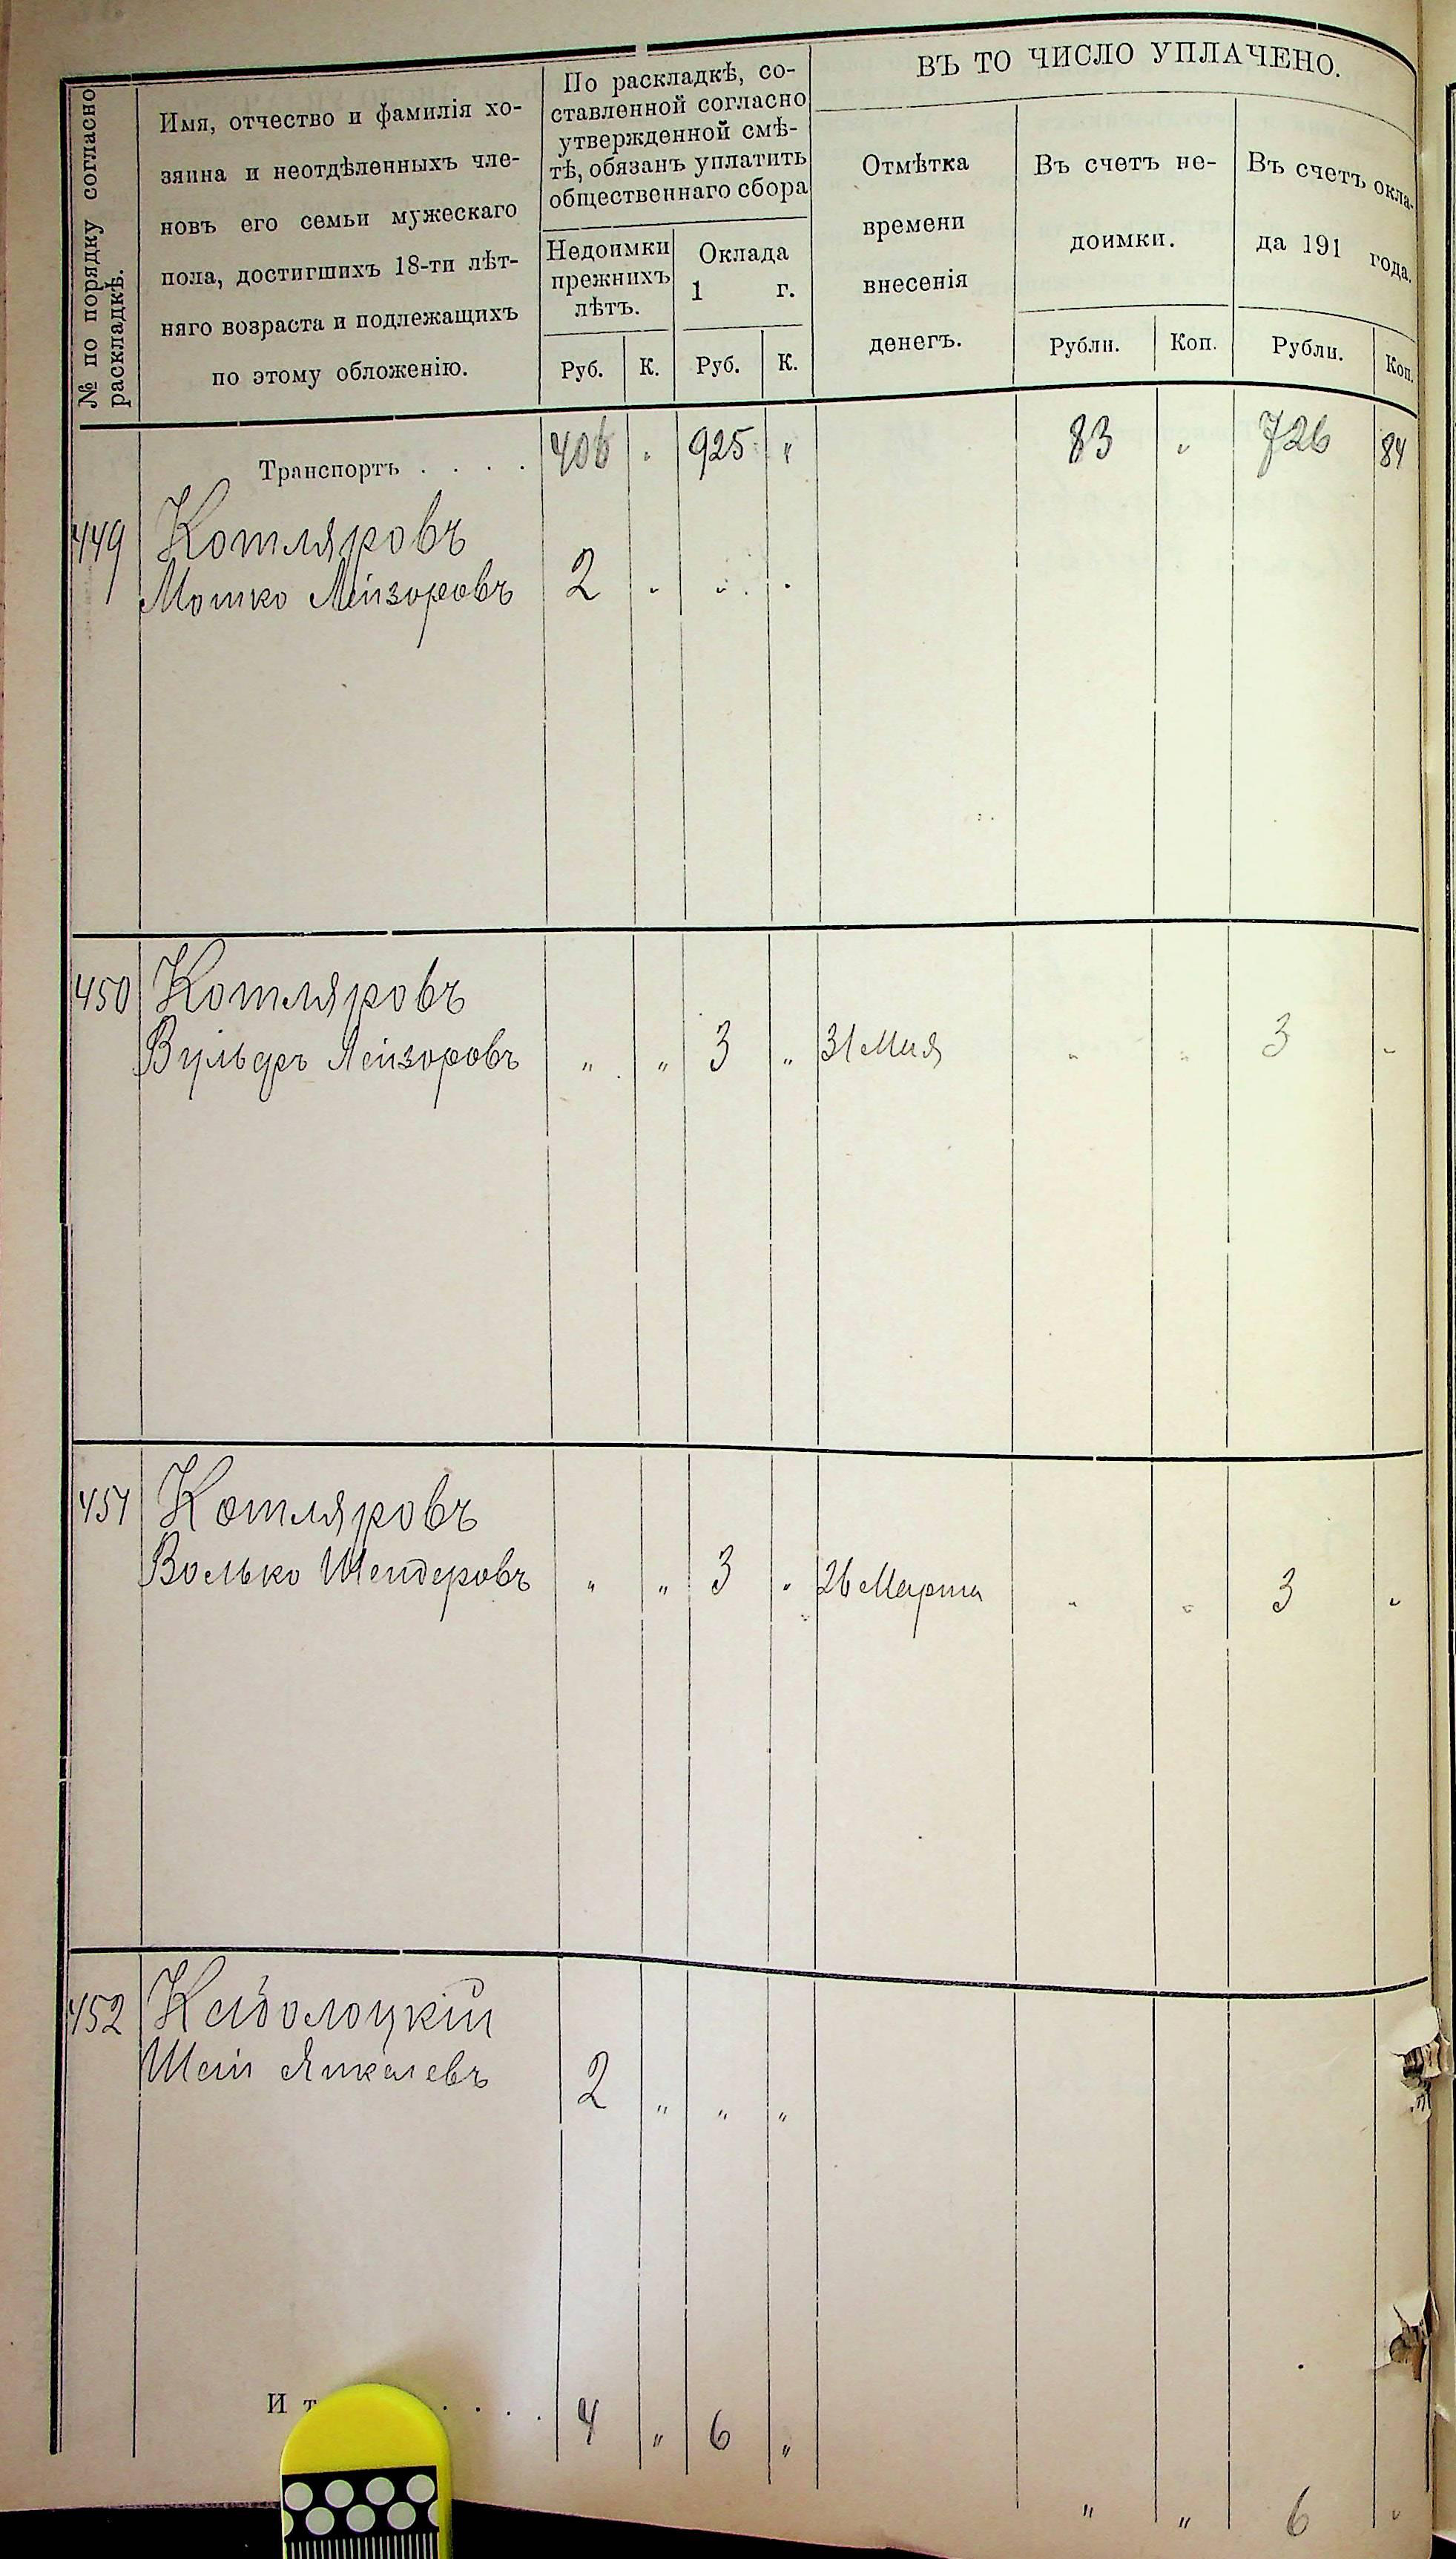 № по порядку согласно
раскладкѣ.
Имя, отчество и фамилія хо-
зяина и неотдѣленныхъ чле-
новъ его семьи мужескаго
пола, достигшихъ 18-ти лѣт-
няго возраста и подлежащихъ
по этому обложенію.
По раскладкѣ, со-
ставленной согласно
утвержденной смѣ-
тѣ, обязанъ уплатить
общественнаго сбора
Недоимки
прежнихъ
лѣтъ.
Оклада
1 г.
Руб. К. Руб. К.
ВЪ ТО ЧИСЛО УПЛАЧЕНО.
Отмѣтка
времени
внесенія
денегъ.
Въ счетъ не-
доимки.
Рубли. Коп.
Въ счетъ окла-
да 191 года.
Рубли. Коп.
Транспортъ . . . . 406 " 925 " 83 " 726 84
449 Котляровъ
Мошко Лейзоровъ 2 " " "
450 Котляровъ
Вульфъ Лейзоровъ " " 3 " 31 Мая " " 3 "
451 Котляровъ
Волько Шендеровъ " " 3 " 26 Марта " " 3 "
452
Янкелевъ 2 " " "
И т . . . . 4 " 6 "
" " 6 "